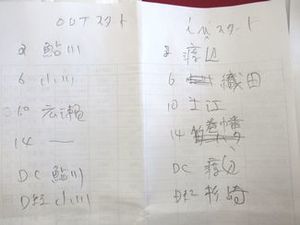 OUTスタート
2 鮎川
6 小川
10 広瀬
14 —
DC 鮎川
D経 小川
inスタート
2 渡辺
6 織田
10 土江
14
DC 渡辺
D経 杉崎